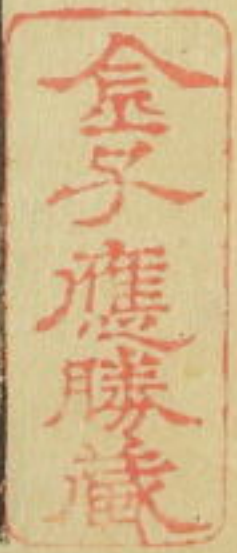 金子應勝藏